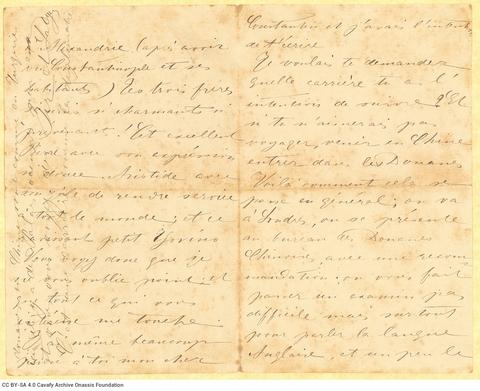 Alexandrie (après avoir
vu Constantinople et ses
habitants) Tes trois frères
mais si charmants si
prévenants! Cet excellent
Pierre avec son expression
si douce Aristide avec
de rendre service
à tout de monde; et ce
petit
Vous voyez donc que je
ne vous oublie point et
que tout ce qui vous
intéresse me touche.
même beaucoup
à toi mon cher
Constantin et j'avais l'intention
de t'écrire
Je voulais te demander
quelle carrière tu as l'
intention de suivre? Et
si tu n'aimerais pas
voyager, venir en Chine
entrer dans les Douanes
Voilà comment cela se
passe en général; on va
à Londres, on se présente
au bureau des Douanes
Chinoises, avec une recom
mandation: on vous fait
passer un examen pas
difficile mais surtout
pour parler la langue
Anglaise, et un peu le
CC BY-SA 4.0 Cavafy Archive Onassis Foundation